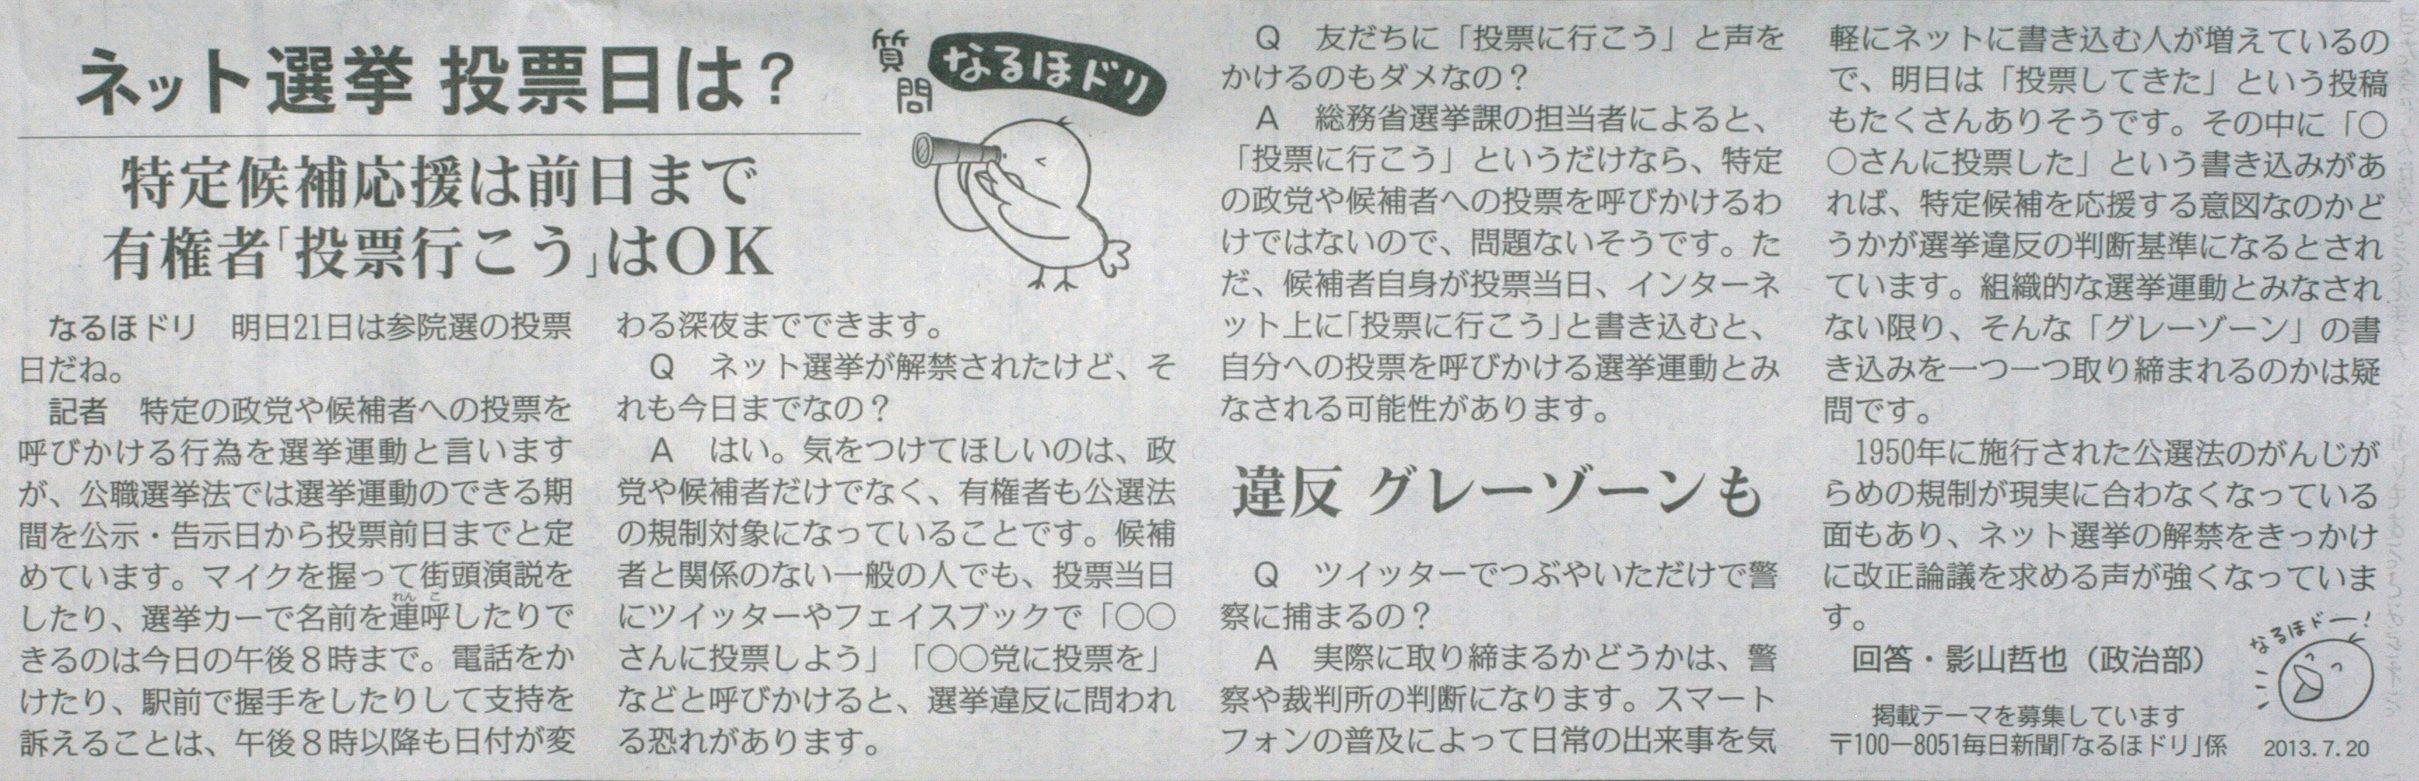 ネット選挙 投票日は?
質問
なるほドリ
特定候補応援は前日まで
有権者「投票行こう」はOK
なるほドリ 明日21日は参院選の投票
日だね。
記者 特定の政党や候補者への投票を
呼びかける行為を選挙運動と言います
が、公職選挙法では選挙運動のできる期
間を公示・告示日から投票前日までと定
めています。マイクを握って街頭演説を
れんこ
したり、選挙カーで名前を連呼したりで
きるのは今日の午後8時まで。電話をか
けたり、駅前で握手をしたりして支持を
訴えることは、午後8時以降も日付が変
わる深夜までできます。
Q ネット選挙が解禁されたけど、そ
れも今日までなの?
A はい。気をつけてほしいのは、政
党や候補者だけでなく、有権者も公選法
の規制対象になっていることです。候補
者と関係のない一般の人でも、投票当日
にツイッターやフェイスブックで「〇〇
さんに投票しよう」「〇〇党に投票を」
などと呼びかけると、選挙違反に問われ
る恐れがあります。
Q 友だちに「投票に行こう」と声を
かけるのもダメなの?
A 総務省選挙課の担当者によると、
「投票に行こう」というだけなら、特定
の政党や候補者への投票を呼びかけるわ
けではないので、問題ないそうです。た
だ、候補者自身が投票当日、インターネ
ット上に「投票に行こう」と書き込むと、
自分への投票を呼びかける選挙運動とみ
なされる可能性があります。
違反 グレーゾーンも
Q ツイッターでつぶやいただけで警
察に捕まるの?
A 実際に取り締まるかどうかは、警
察や裁判所の判断になります。スマート
フォンの普及によって日常の出来事を気
軽にネットに書き込む人が増えているの
で、明日は「投票してきた」という投稿
もたくさんありそうです。その中に「〇
〇さんに投票した」という書き込みがあ
れば、特定候補を応援する意図なのかど
うかが選挙違反の判断基準になるとされ
ています。組織的な選挙運動とみなされ
ない限り、そんな「グレーゾーン」の書
き込みを一つ一つ取り締まれるのかは疑
問です。
1950年に施行された公選法のがんじが
らめの規制が現実に合わなくなっている
面もあり、ネット選挙の解禁をきっかけ
に改正論議を求める声が強くなっていま
す。
回答・影山哲也(政治部)
なるほドー!
掲載テーマを募集しています
〒100-8051毎日新聞「なるほドリ」係
2013.7.20